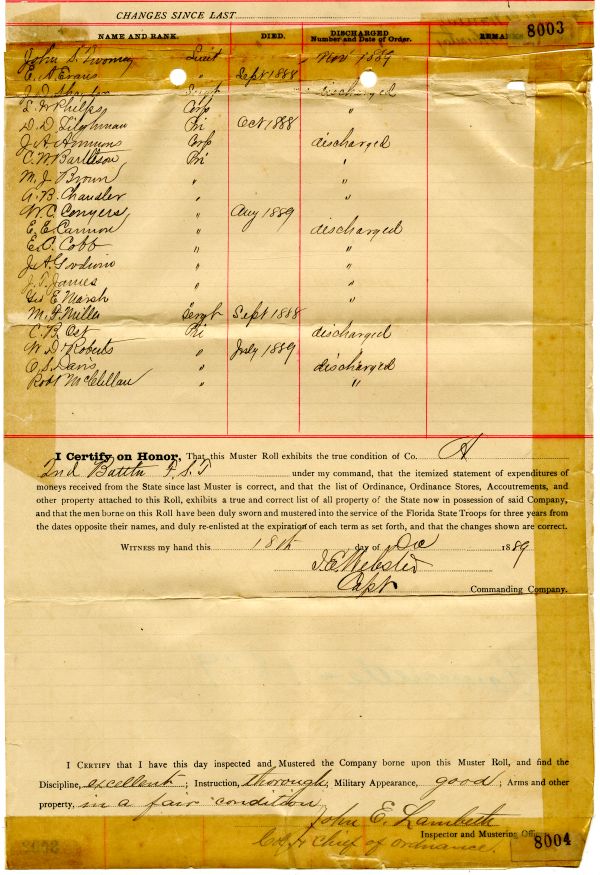 CHANGES SINCE LAST
8003
NAME AND RANK. DIED. DISCHARGED Number and Date of Order. REMARKS
John S. Twomey Lieut " Nov 1889
E. A. Evans " Sept 1888
J. D. Sergt discharged
E. W. Phelps Corp "
D. D. Tilghman Pri Oct 1888
J. A. Ammons Corp discharged
C. W. Bartleson Pri "
M. J. Brown " "
A. B. Chandler " "
W. C. Conyers " Aug 1889
E. E. Cannon " discharged
E. C. Cobb " "
J. A. Goodwin " "
J. T. James " "
Geo E. Marsh " "
M. F. Miller Sergt Sept 1888
C. B. Ost Pri discharged
W. D. Roberts " July 1889
O. S. Davis " discharged
Robt McClellan " "
I Certify on Honor, That this Muster Roll exhibits the true condition of Co. A
2nd Battn F. S. T under my command, that the itemized statement of expenditures of
moneys received from the State since last Muster is correct, and that the list of Ordinance, Ordinance Stores, Accoutrements, and
other property attached to this Roll, exhibits a true and correct list of all property of the State now in possession of said Company,
and that the men borne on this Roll have been duly sworn and mustered into the service of the Florida State Troops for three years from
the dates opposite their names, and duly re-enlisted at the expiration of each term as set forth, and that the changes shown are correct.
WITNESS my hand this 18th day of Dec 1889
J. E. Webster
Capt Commanding Company.
I CERTIFY that I have this day inspected and Mustered the Company borne upon this Muster Roll, and find the
Discipline, excellent; Instruction, thorough, Military Appearance, good; Arms and other
property, in a fair condition
John E. Lambeth
Inspector and Mustering Officer
Col & Chief of Ordnance.
8004